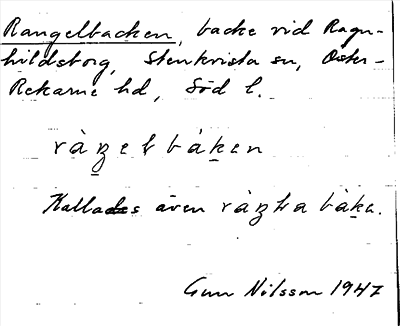 Rangelbacken, backe vid Ragn-
hildsborg, Stenkvista sn, Öster-
Rekarne hd, Söd l.
ràŋelbàken
Kallades även ràŋka bàka.
Gun Nilsson 1947